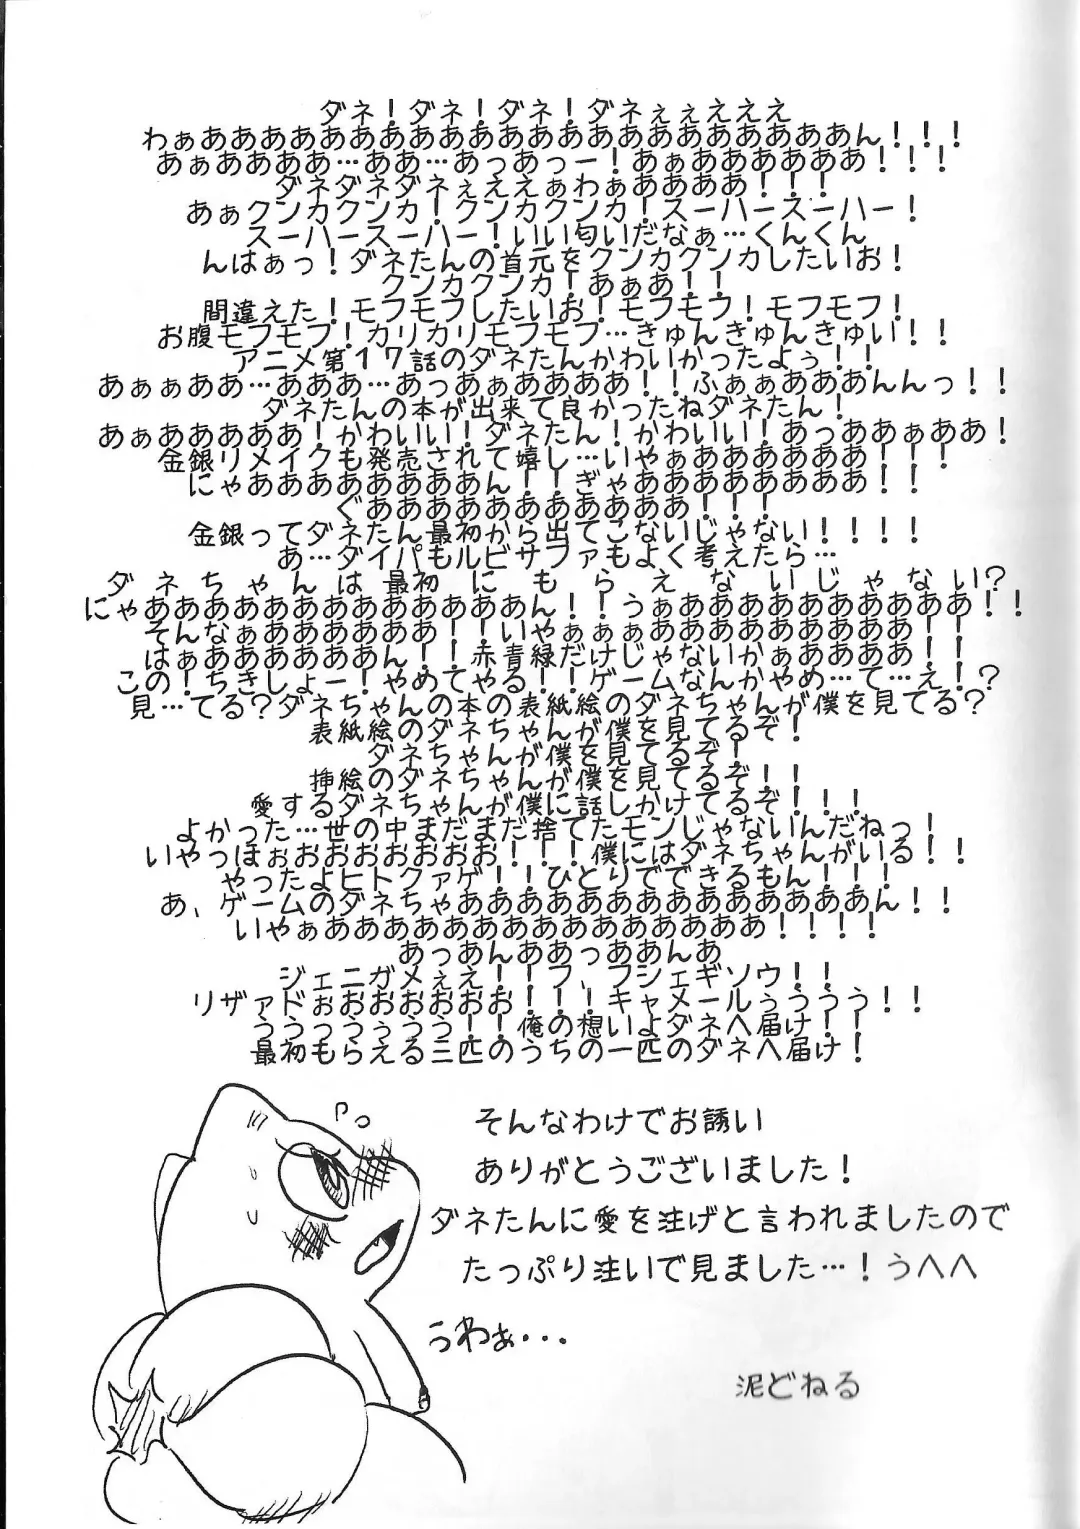 ダネ！ダネ！ダネ！ダネぇぇえええ
わぁああああああああああああああああああああああん！！！
あぁああああ…ああ…あっあっー！あぁああああああ！！！
ダネダネダネぇええぇぁわぁああああ！！！
あぁクンカクンカ！クンカクンカ！スーハースーハー！
スーハースーハー！いい匂いだなぁ…くんくん
んはぁっ！ダネたんの首元をクンカクンカしたいお！
クンカクンカ！あぁあ！！
間違えた！モフモフしたいお！モフモフ！モフモフ！
お腹モフモフ！カリカリモフモフ…きゅんきゅんきゅい！！
アニメ第１７話のダネたんかわいかったよぅ！！
あぁぁああ…あああ…あっあぁああああ！！ふぁぁあああんんっ！！
ダネたんの本が出来て良かったねダネたん！
あぁあああああ！かわいい！ダネたん！かわいい！あっああぁああ！
金銀リメイクも発売されて嬉し…いやぁああああああ！！！
にゃああああああああん！！ぎゃああああああああ！！
ぐあああああああああああ！！！
金銀ってダネたん最初から出てこないじゃない！！！！
あ…ダイパもルビサファもよく考えたら…
ダネちゃんは最初にもらえないじゃない？
にゃあああああああああああああん！！うぁああああああああああ！！
そんなぁああああああ！！いやぁぁぁああああああああ！！
はぁああああああん！！赤青緑だけじゃないかぁああああ！！
この！ちきしょー！やめてやる！！ゲームなんかやめ…て…え！？
見…てる？ダネちゃんの本の表紙絵のダネちゃんが僕を見てる？
表紙絵のダネちゃんが僕を見てるぞ！
ダネちゃんが僕を見てるぞ！
挿絵のダネちゃんが僕を見てるぞ！！
愛するダネちゃんが僕に話しかけてるぞ！！！
よかった…世の中まだまだ捨てたモンじゃないんだねっ！
いやっほぉおおおおおおお！！！僕にはダネちゃんがいる！！
やったよヒトクァゲ！！ひとりでできるもん！！！
あ、ゲームのダネちゃああああああああああああああん！！
いやぁあああああああああああああああ！！！！
あっあんああっああんあ
ジェニガメぇえ！！フ、フシェギソウ！！
リザァドぉおおおおおお！！！キャメールぅううう！！
ううっうぅうう！！俺の想いよダネへ届け！！
最初もらえる三匹のうちの一匹のダネへ届け！
そんなわけでお誘い
ありがとうございました！
ダネたんに愛を注げと言われましたので
たっぷり注いで見ました…！うへへ
うわぁ・・・
泥どねる